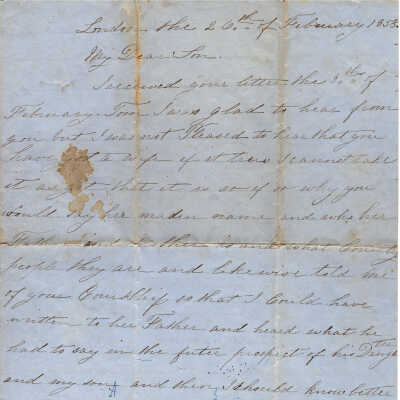 London the 26th of February 1853
My Dear Son.
I received your letter the 3th of
February. Tom I was glad to hear from
you but I was not Pleased to hear that you
have got a wife if it true I cannot take
it as that it is so if so why you
would say her maden name and who her
Father and Mother is and what Country
people they are and likewise told me
of your Courtship so that I Could have
written to her Father and heard what he
had to say in the futer prospect of his Daught
and my son and then I should know better